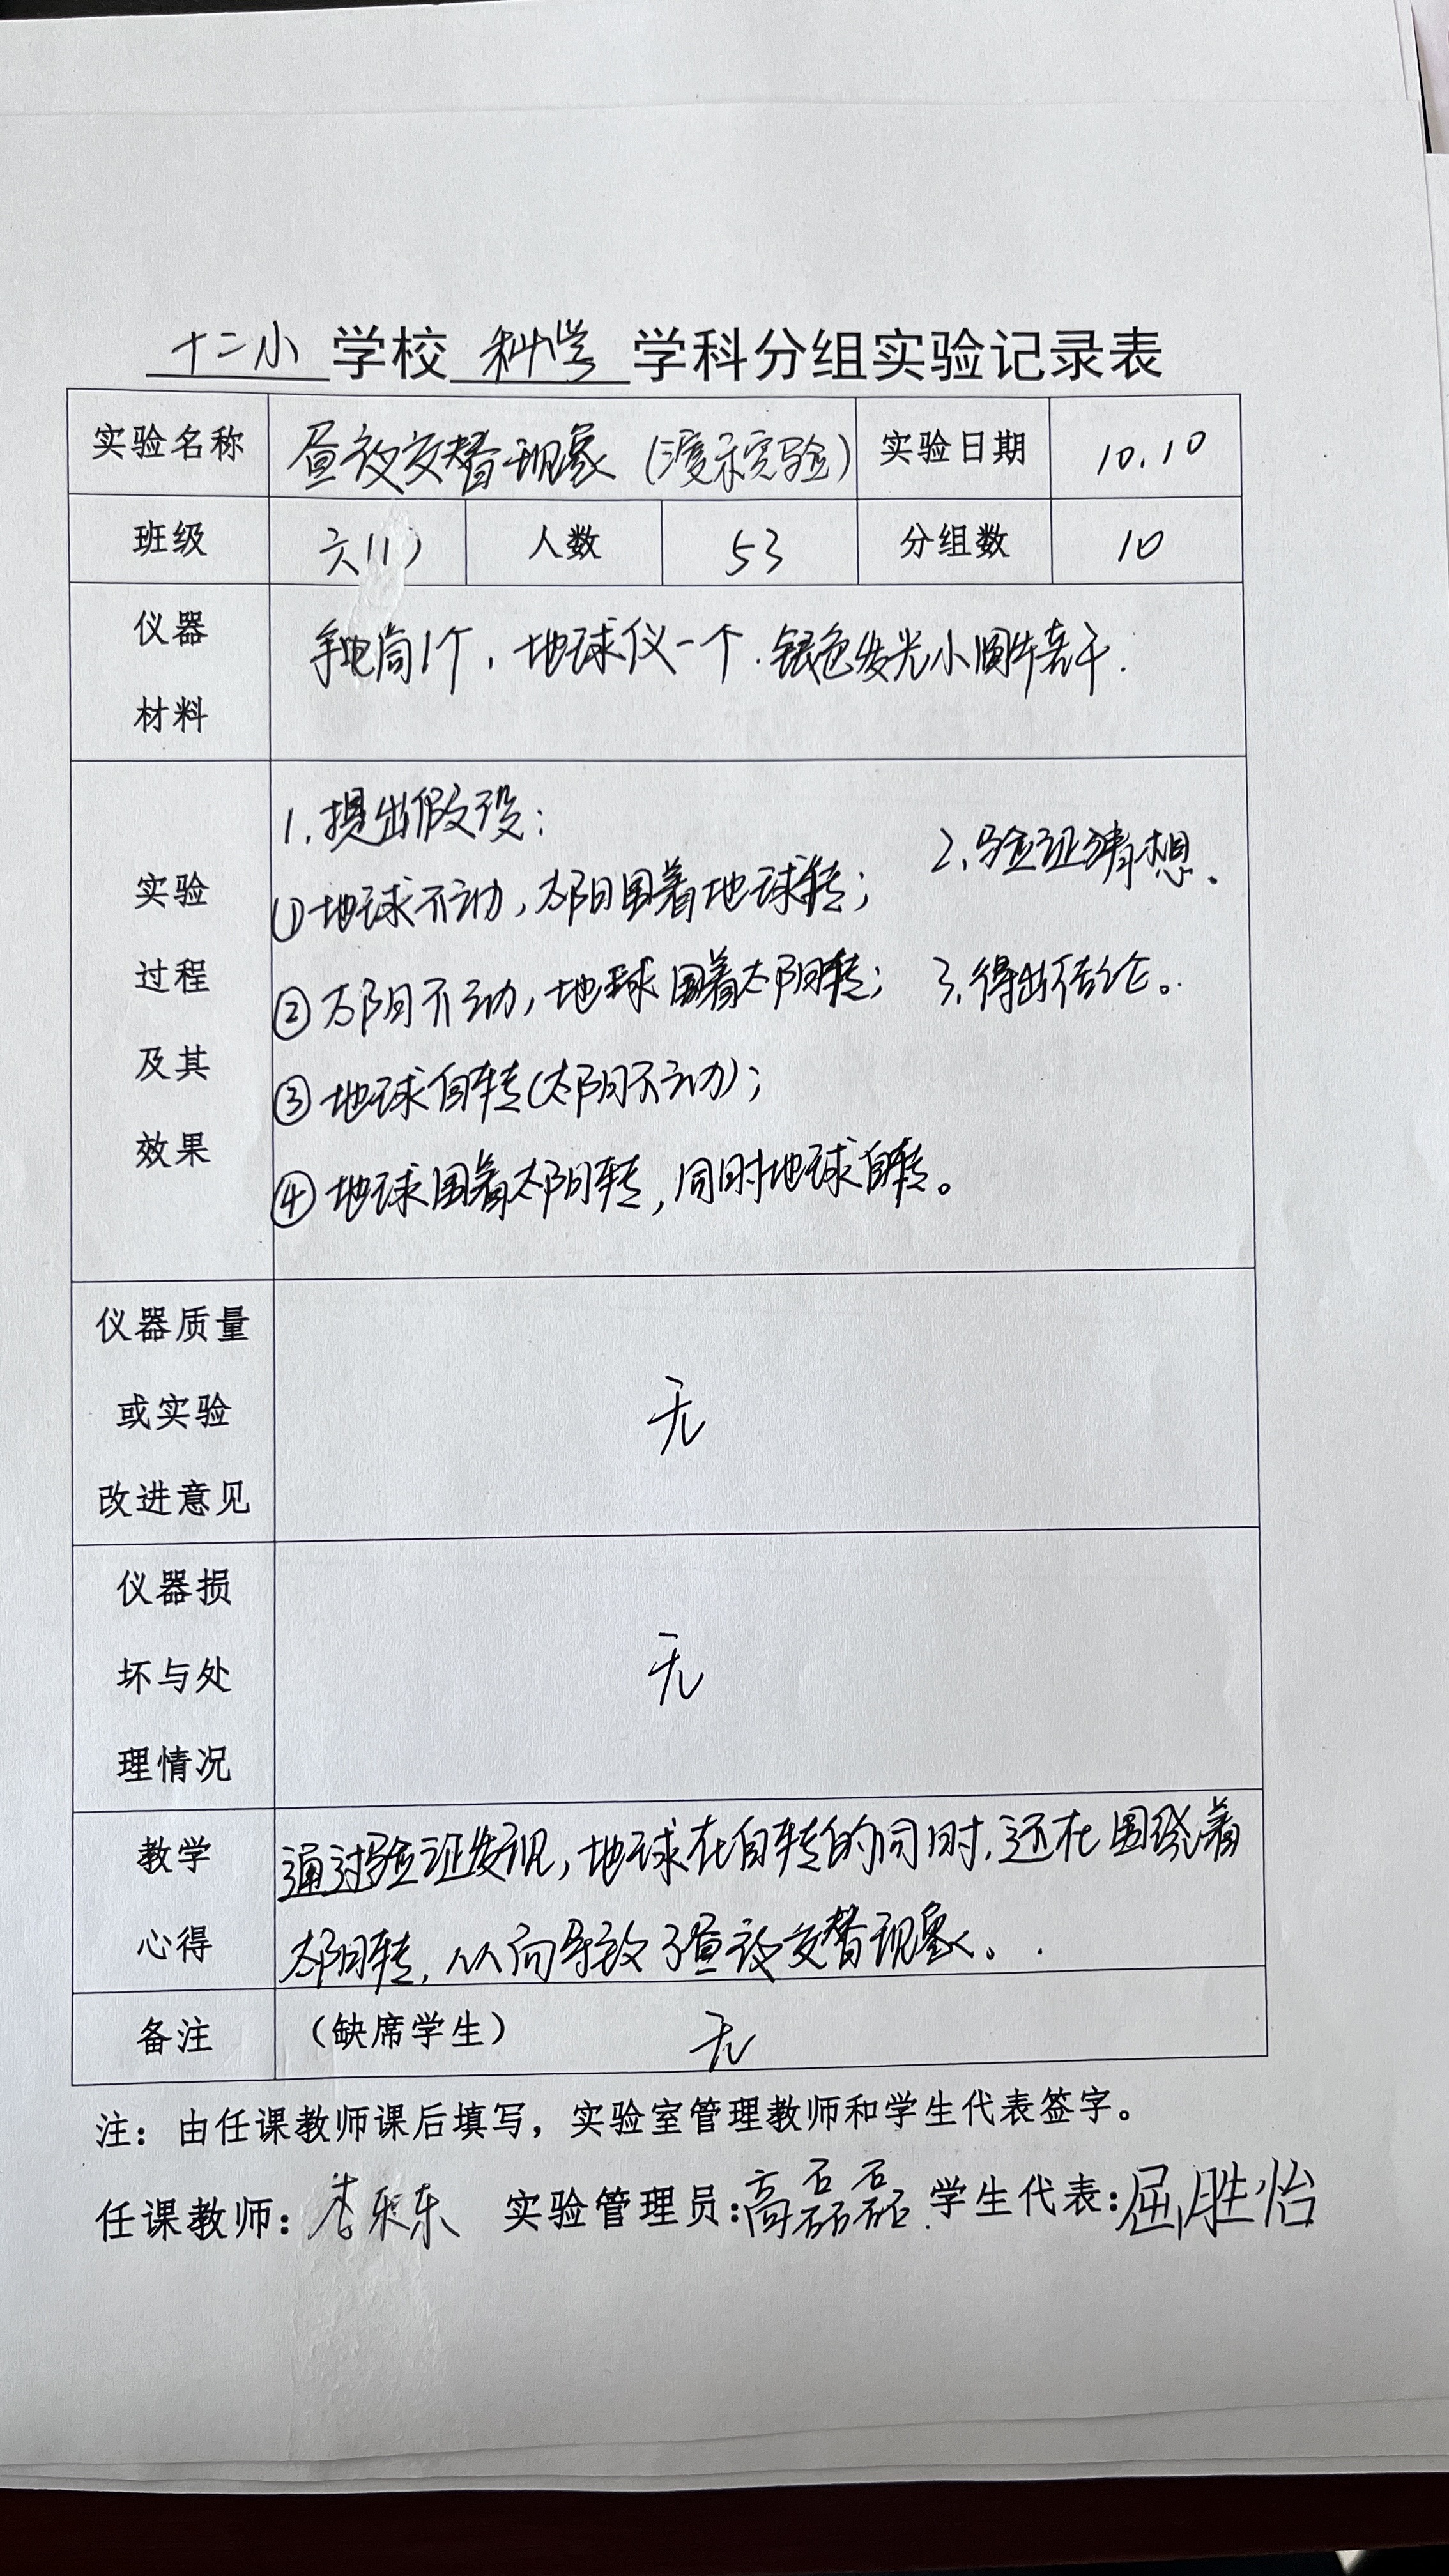 十二小 学校 科学 学科分组实验记录表
实验名称 昼夜交替现象(演示实验) 实验日期 10.10
班级 六(1) 人数 53 分组数 10
仪器
材料
手电筒1个,地球仪一个.银色发光小圆片若干.
实验
过程
及其
效果
1.提出假设:
①地球不动,太阳围着地球转;
②太阳不动,地球围着太阳转;
③地球自转(太阳不动);
④地球围着太阳转,同时地球自转。
2.验证猜想.
3.得出结论。
仪器质量
或实验
改进意见
无
仪器损
坏与处
理情况
无
教学
心得
通过验证发现,地球在自转的同时,还在围绕着
太阳转,从而导致了昼夜交替现象。
备注 (缺席学生) 无
注:由任课教师课后填写,实验室管理教师和学生代表签字。
任课教师: 实验管理员:高磊磊. 学生代表:屈胜怡